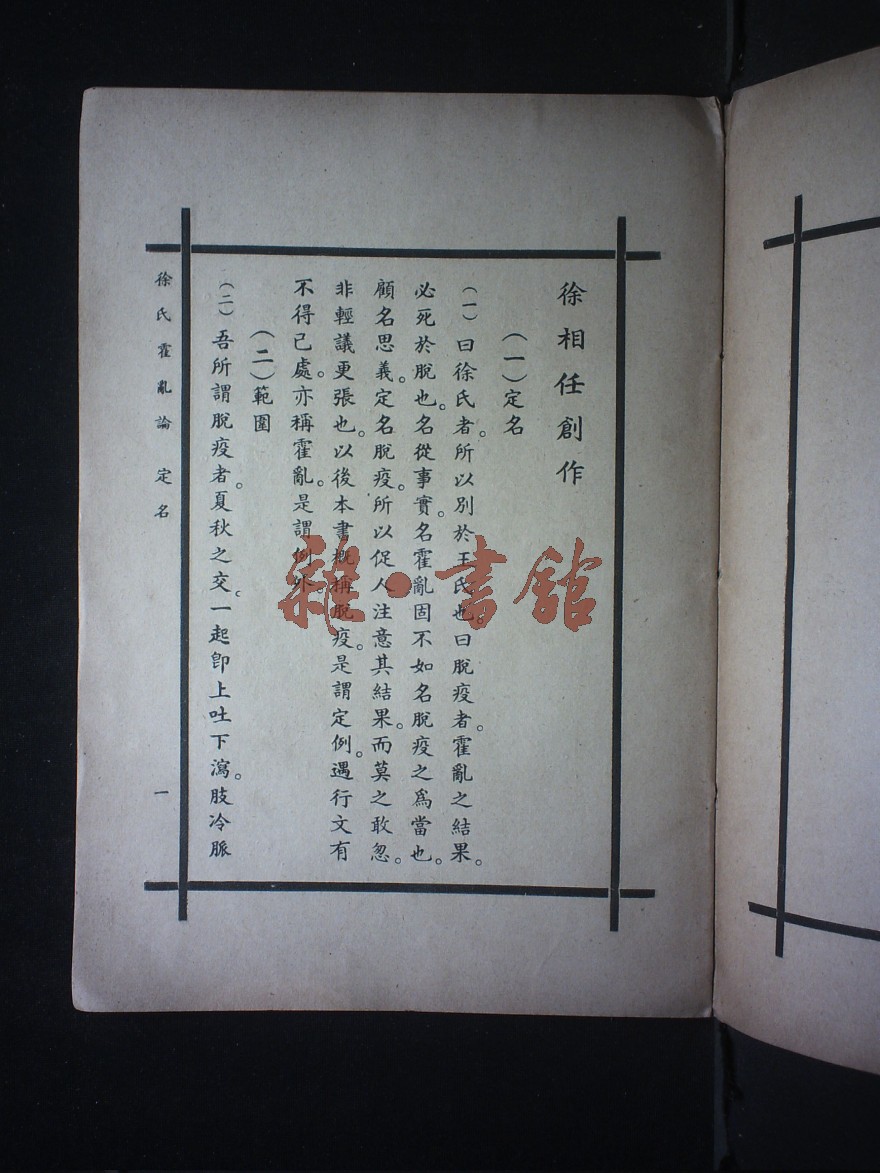 徐相任創作
（一）定名
（一）曰徐氏者。所以別於王氏也。曰脫疫者。霍亂之結果。
必死於脫也。名從事實。名霍亂固不如名脫疫之爲當也。
顧名思義。定名脫疫。所以促人注意其結果。而莫之敢忽。
非輕議更張也。以後本書概稱脫疫。是謂定例。遇行文有
不得已處。亦稱霍亂。是謂例外。
（二）範圍
（二）吾所謂脫疫者。夏秋之交。一起卽上吐下瀉。肢冷脈
徐氏霍亂論 定名 一
雜·書館